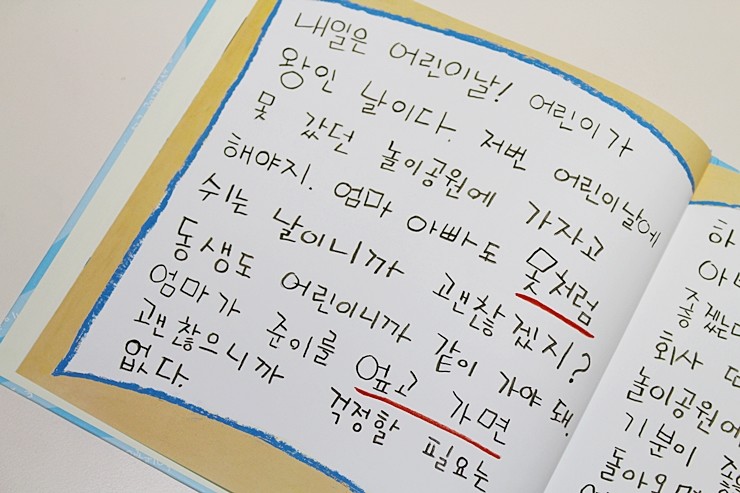 내일은 어린이날! 어린이가
왕인 날이다. 저번 어린이날에
못 갔던 놀이공원에 가자고
해야지. 엄마 아빠도 못처럼
쉬는 날이니까 괜찮겠지?
동생도 어린이니까 같이 가야 돼.
엄마가 준이를 엎고 가면
괜찮으니까 걱정할 필요는
없다.
하
회사
놀이공원에
기분이